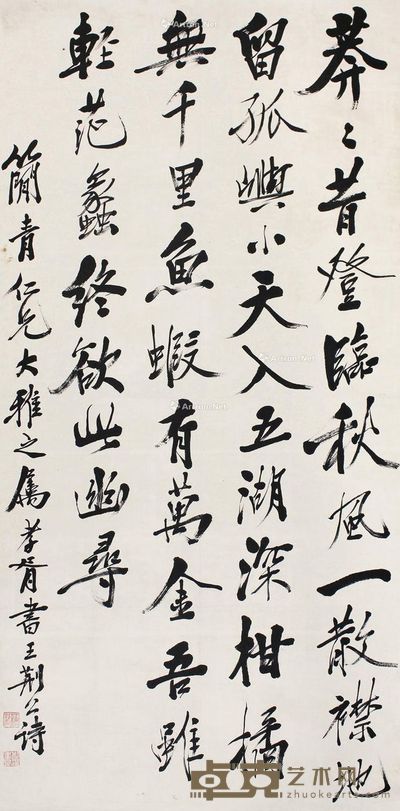 莽〻昔登臨秋風一散襟地
留孤嶼小天入五湖深柑橘
無千里魚蝦有萬金吾雖
輕范蠡終欲此幽尋
簡青仁兄大雅之屬孝胥書王荆公詩
Artron.Net
卓克艺术网
zhuokearts.com